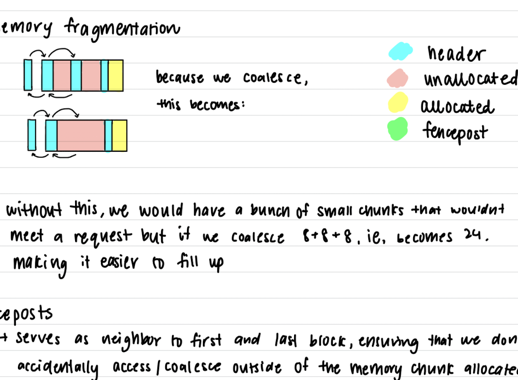 emory fragmentation
header
because we coalesce,
unallocated
this becomes:
allocated
fencepost
without this, we would have a bunch of small chunks that wouldnt
meet a request but if we coalesce 8+8+8, ie, becomes 24.
making it easier to fill up
ceposts
serves as neighbor to first and last block, ensuring that we don
accidentally access/coalesce outside of the memory chunk allocate